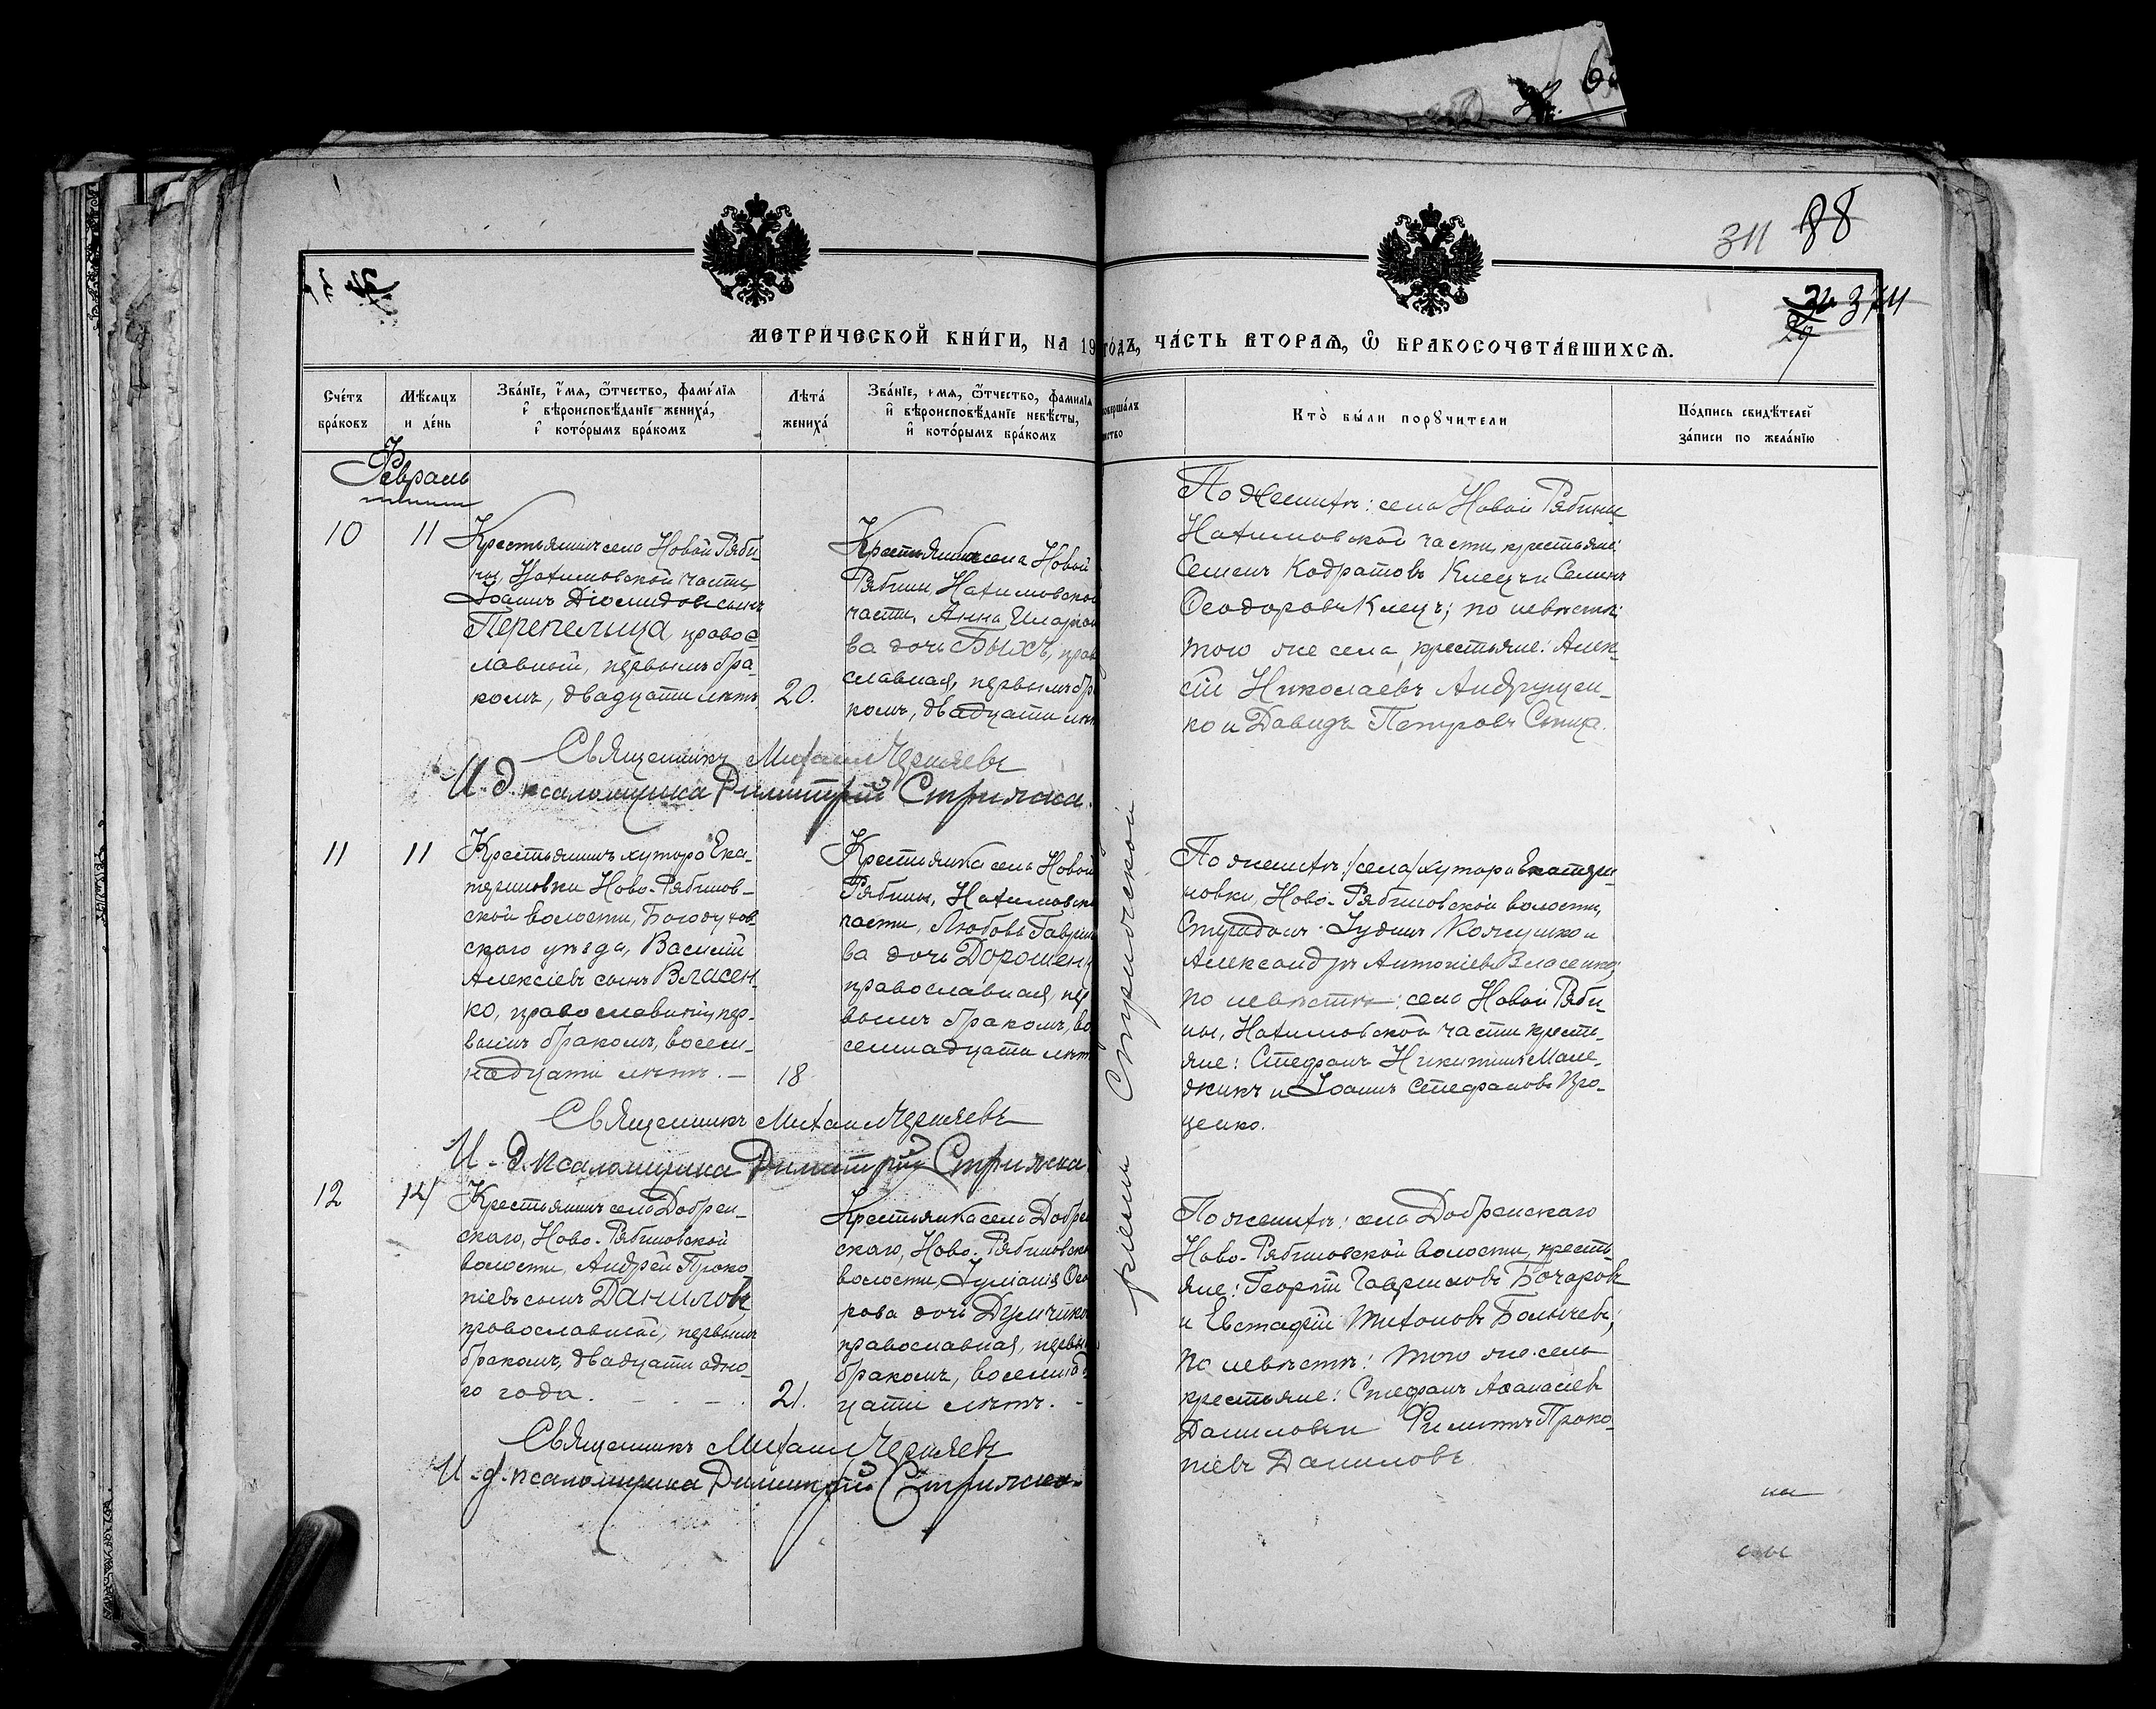 88
311
МЕТРИ́ЧЕСКОЙ КНИ́ГИ, НА 19
го́дъ, ЧА́СТЬ ВТОРА́Ѧ, Ѿ БРАКОСОЧЕТА́ВШИХСѦ.
Сче́тъ бра́ковъ
Мѣ́сяцъ и де́нь
Зва́нїе, и́мѧ, ѻ҆́тчество, фами́лїѧ
и҆ вѣроисповѣ́данїе жениха́,
и҆ кото́рымъ бра́комъ
Лѣта́ жениха́
Зва́нїе, имѧ, ѻ҆́тчество, фами́лїѧ
и҆ вѣроисповѣ́данїе невѣ́сты,
и҆ кото́рымъ бра́комъ
Кто̀ бы́ли порꙋчи́тели
По́дпись свидѣ́телей
за́писи по жела́нїю
Февраль
10
11
Крестьянинъ села Новой Ряби-
ны, Натиловской части,
Іоаннъ Діомидовъ сынъ
Перепелица, правос
лавный, первымъ бра-
комъ, двадцати лѣтъ
20.
Крестьянка села Новой
Рябины Натиловской
части, Анна Иларіон
ва дочь Быхъ, прав
славная, первымъ бр
комъ, двадцати лѣт
По женихѣ: села Новой Рябины
Натиловской части, крестьяне:
Семенъ Кодратовъ Клецъ и Семенъ
Ѳеодоровъ Клецъ; по невѣстѣ:
того же села, крестьяне: Алек-
сій Николаевъ Андрущен-
ко и Давидъ Петровъ Сыпца.
Священникъ Михаил Черняевъ
И. д. псаломщика Димитрій Стрижка.
11
11
Крестьянинъ хутора Ека-
териновки Ново-Рябинов-
ской волости, Богодухов
скаго уѣзда, Василій
Алексіевъ сынъ Власен-
ко, православный, пер-
вымъ бракомъ, восем-
надцати лѣтъ. –
18
Крестьянка села Новой
Рябины, Натиловск
части, Любовь Гаврил
ва дочь Дорошенк
православная, пер
вымъ бракомъ, во
семнадцати лѣт
По женихѣ: /села/ хутора Екатери-
новки, Ново-Рябиновской волости,
Іудинъ Кожушко и
Александръ Антоніевъ Власенко;
по невѣстѣ: села Новой Ряби-
ны, Натиловской части кресть-
яне: Стефанъ Никитинъ Мане-
джикъ и Іоаннъ Стефановъ Про-
ценко.
Священникъ Михаил Черняевъ
И. д. псаломщика Димитрій Стрижка
12
14
Крестьянинъ села Добрен-
скаго, Ново-Рябиновской
волости, Андрей Проко
піевъ сынъ Даниловъ
православный, первымъ
бракомъ, двадцати одно-
го года.
21.
Крестьянка села Добре
скаго, Ново-Рябиновско
волости, Іуліанія Ѳео
рова дочь Думчико
православная, первы
бракомъ, восемнад
цати лѣтъ. –
По женихѣ: села Добренскаго
Ново-Рябиновской волости, кресть-
яне: Георгій Гавриловъ Бочаровъ
и Евстафій Тихоновъ Болычевъ;
по невѣстѣ: того же села
крестьяне: Стефанъ Аѳанасіевъ
Даниловъ и Филиппъ Проко-
піевъ Даниловъ
Священникъ Михаил Черняевъ
И. д. псаломщика Димитрій Стрижка.